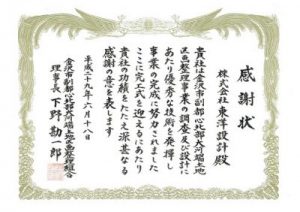 感謝状
株式会社東洋設計殿
貴社は金沢市副都心北部大河端土地
区画整理事業の調査及び設計に
あたり優秀な技術を発揮し
事業の完成に努力されました
ここに完工式を迎えるにあたり
貴社の功績をたたえ深甚なる
感謝の意を表します
平成二十九年六月十八日
金沢市副都心北部大河端土地区画整理組合
理事長 下野勘一郎